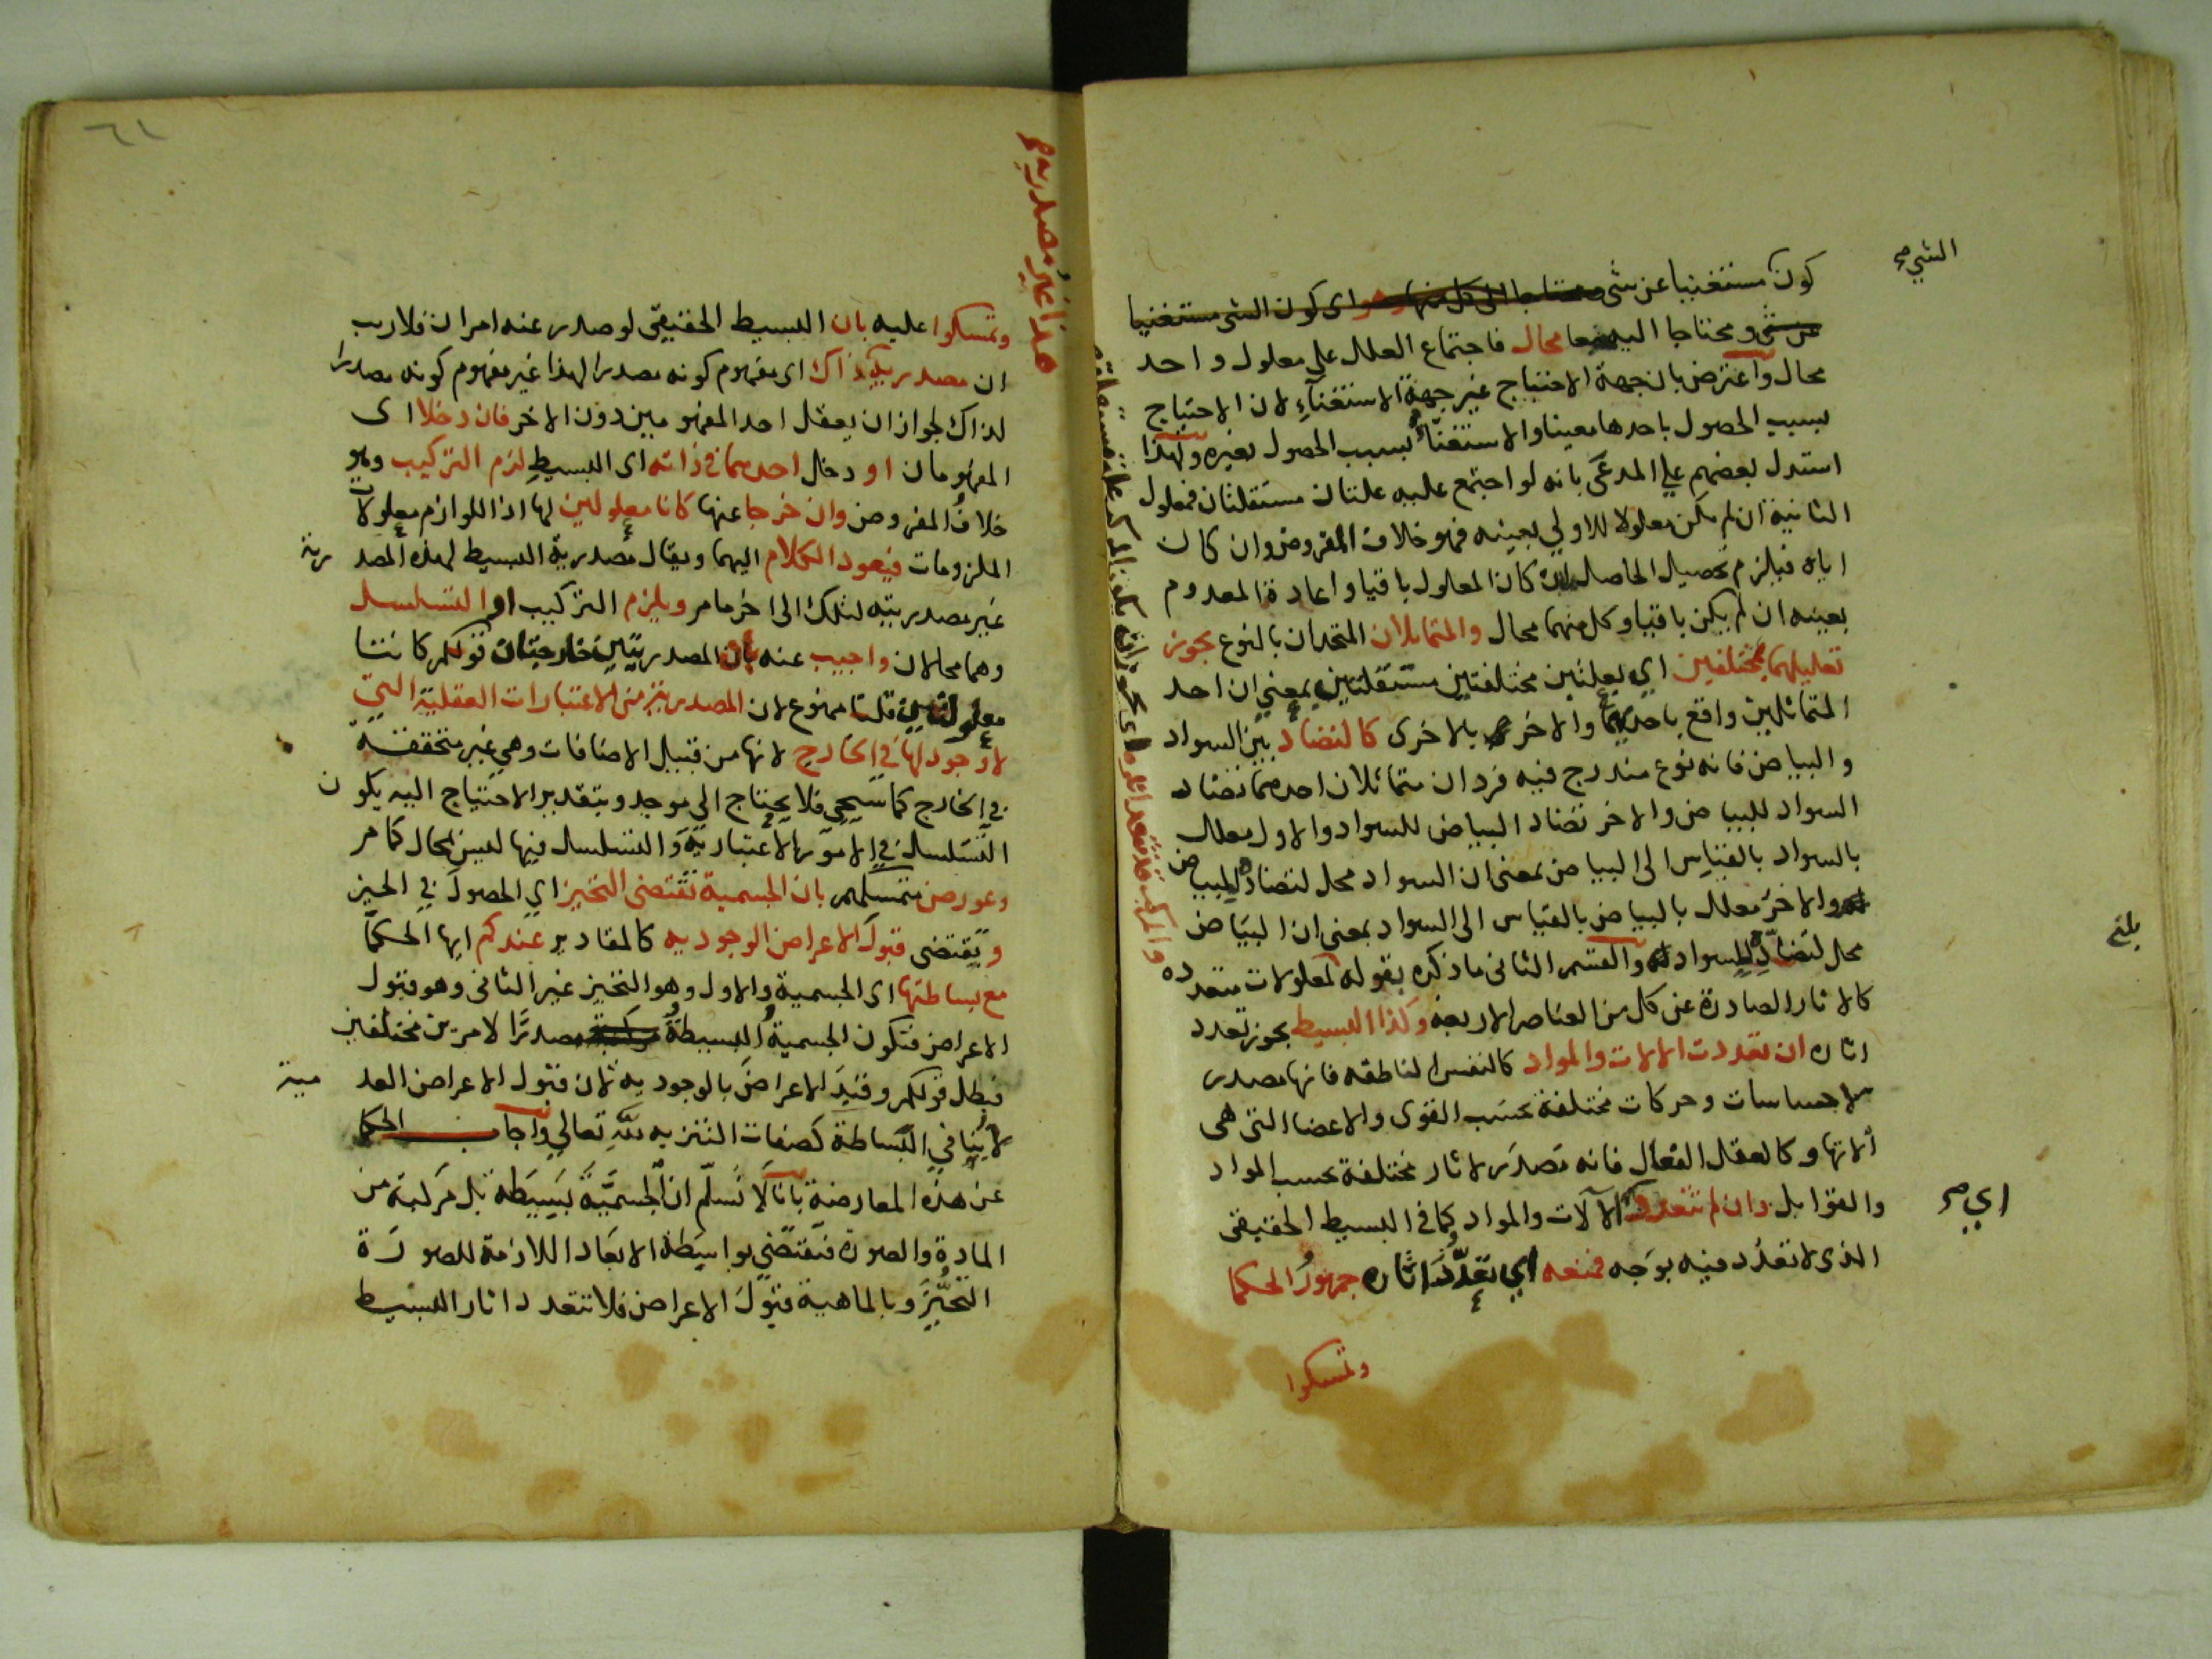 الشي صح
كون مستغنيا عن شي محتاجا الى كل منها وهو اى كون الشى مستغنيا
عن شى ومحتاجا اليه معا محال فاجتماع العلل علي معلول واحد
محال واعترض بان جهة الاحتياج غير جهة الاستغنآءِ لان الاحتياج
بسبب الحصول باحدها معينا والاستغنآء بسبب الحصول بغيره ولهذا
استدل بعضهم علي المدعَى بانه لو اجتمع عليه علتان مستقلتان فمعلول
الثانية ان لم يكن معلولا للاولي بعينه فهو خلاف المفروض وان كان
اياه فيلزم تحصيل الحاصل ان كان المعلول باقيا واعادة المعدوم
بعينه ان لم يكن باقيا وكل منهما محال والمتماثلان المتحدان بالنوع يجوز
تعليلهما بمختلفين اي بعلتين مختلفتين مستقلتين بمعني ان احد
المتماثلين واقع باحديهما والاخر بالاخرى كالتضاد بين السواد
والبياض فانه نوع مندرج فيه فردان متماثلان احدهما تضاد
السواد للبياض والاخر تضاد البياض للسواد والاول معلل
بالسواد بالقياس الى البياض بمعنى ان السواد محل لتضاده للبياض
والاخر معلل بالبياض بالقياس الى السواد بمعنى ان البياض
محل لتضادّه للسواد والقسم الثانى ما ذكره بقوله لمعلولات متعدده
كالاثار الصادرة عن كل من العناصر الاربعة وكذا البسيط يجوز تعدد
اثاره ان تعددت الالات والمواد كالنفس الناطقه فانها مصدر
لاحساسات وحركات مختلفة بحسَب القوى والاعضا التى هى
ألاتها وكالعقل الفعال فانه تصدر لاثار مختلفة بحسب المواد
والقوابل وان لم تتعدد الآلات والمواد كما فى البسيط الحقيقى
الذى لا تعدُد فيه بوَجه فمنعه اي تعدّد اثاره جمهورُ الحكما
وتمسكوا
بلغ
اي صح
هذا غير مصدريه صح
وتمسكوا عليه بان البسيط الحقيقى لو صدر عنه امران فلا ريب
ان مصدريه ذاك اى مفهوم كونه مصدرا لهذا غير مفهوم كونه مصدرا
لذاك لجواز ان يعقل احد المفهومين دون الاخر فان دخلا اى
المفهومان او دخل احدهما فى ذاته اى البسيطِ لزم التركيب وهو
خلافُ المفروض وان خرجا عنها كانا معلولين لها اذ اللوازم معلولات
الملزومات فيعود الكلام اليهما ويقال مصدرية البسيط لهذه المصدرية
غير مصدريته لتلك الى اخر ما مر ويلزم التركيب او التسلسل
وهما محالان واجيب عنه بأن المصدريتين خارجيتان قولكم كانتا
معلولتين قلنا ممنوع لان المصدريتين من الاعتبارات العقلية التي
لا وُجود لها فى الخارج لانها من قبيل الاضافات وهي غير متحققة
في الخارج كما سَيجي فلا يحتاج الي موجد وبتقدير الاحتياج اليه يكون
التسَلسل في الامور الاعتبارية والتسلسل فيها ليس بمحال كما مر
وعورض تمسكهم بان الجسمية تقتضى التحيز اي الحصولَ في الحيز
وتقتضى قبولَ الاعراض الوجوديه كالمقادير عندكم ايها الحكما
مع بساطتها اى الجسمية والاول وهو التحيز غير الثانى وهو قبول
الاعراض فتكون الجسميةُ البسيطةُ مصدرًا لامرين مختلفين
فبطل قولكم وقيدَ الاعراضَ بالوجوديه لان قبول الاعراض العدمية
لا ينافى البَساطة كصفات التنزيه للّهِ تعالي واجاب الحكما
عن هذه المعارضة بانا لَا نسَلّم ان الجسميَّةَ بَسِيطة بل مركبة من
المادة والصورة فتقتضى بواسِطة الابعاد اللازمة للصورَة
التَّحيُّزَ وبالماهية قبولَ الاعراض فلا تتعدد اثار البسيط
٦١